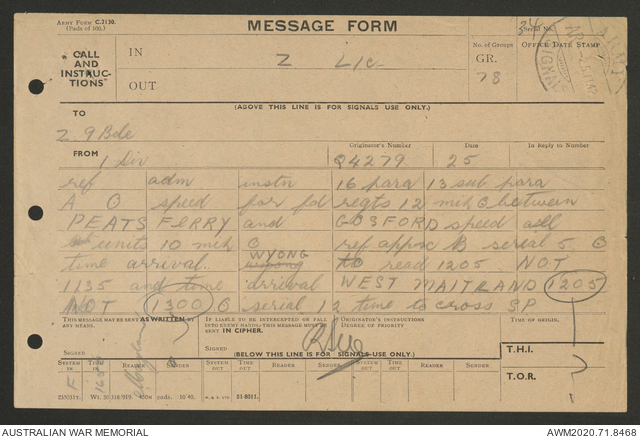 ARMY FORM C.2130.
(Pads of 100.)
MESSAGE FORM
Serial No.
34
CALL AND INSTRUC-TIONS
IN
Z LIC
No. of Groups
GR.
78
OFFICE DATE STAMP
OUT
(ABOVE THIS LINE IS FOR SIGNALS USE ONLY.)
TO
2. 9 Bde
FROM
1 Div
Originator's Number
Q4279
Date
25
In Reply to Number
ref adm instn 16 para 13 sub para
A O speed for fd regts 12 mih O between
PEATS FERRY and GOSFORD speed all
units 10 mih O ref appx B serial 5 O
time arrival WYONG to read 1205 NOT
1135 and time arrival WEST MAITLAND 1205
NOT 1300 O serial 12 time to cross SP
THIS MESSAGE MAY BE SENT AS WRITTEN BY ANY MEANS.
SIGNED
IF LIABLE TO BE INTERCEPTED OR FALL INTO ENEMY HANDS, THIS MESSAGE MUST BE SENT IN CIPHER.
SIGNED
ORIGINATOR'S INSTRUCTIONS
DEGREE OF PRIORITY
TIME OF ORIGIN.
T.H.I.
T.O.R.
(BELOW THIS LINE IS FOR SIGNALS USE ONLY.)
SYSTEM IN
TIME IN
READER
SENDER
SYSTEM OUT
TIME OUT
READER
SENDER
SYSTEM OUT
TIME OUT
READER
SENDER
F
51-8011.
AUSTRALIAN WAR MEMORIAL
AWM2020.71.8468